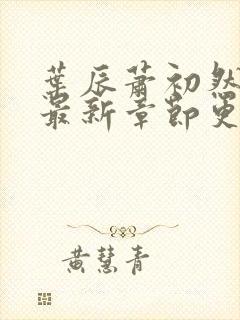 葉辰蕭初然
最新章節更
黃慧青